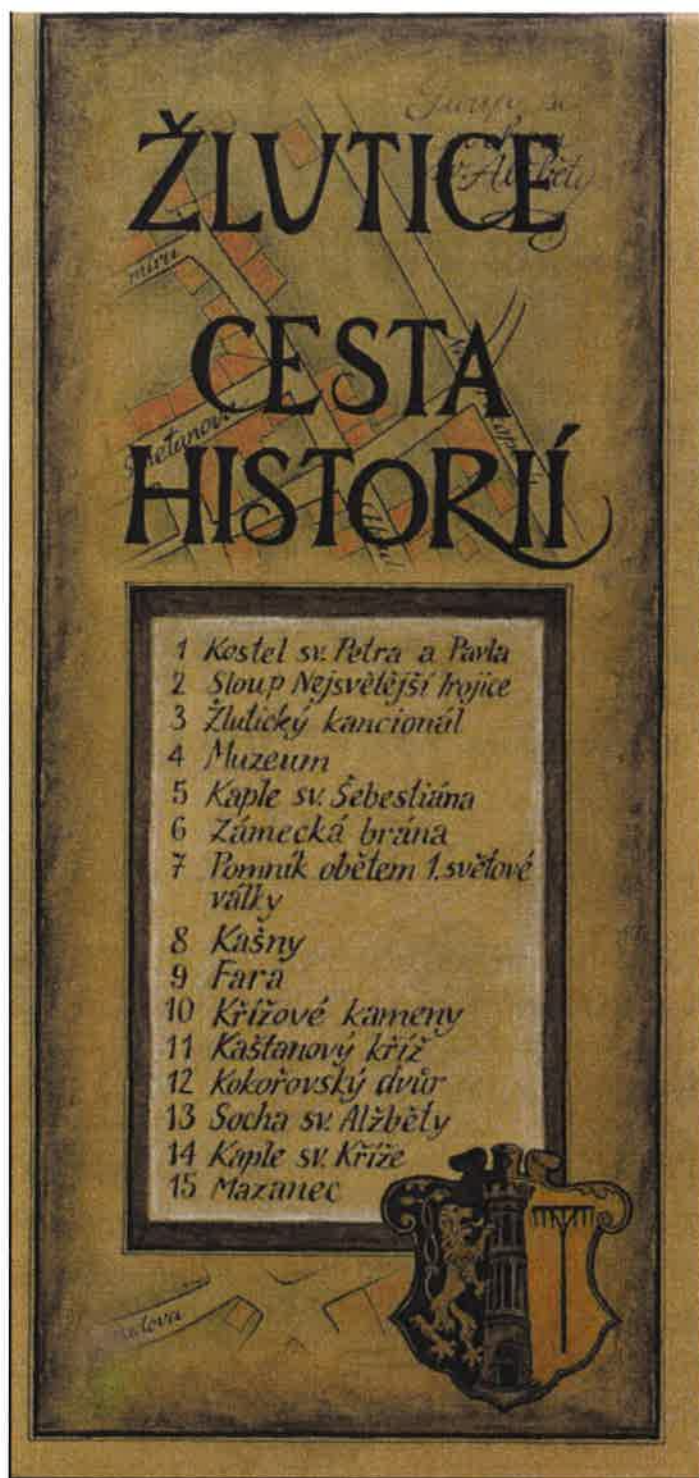 ŽLUTICE
CESTA
HISTORIÍ
sv. Alžběty
míru
Smetanova
1 Kostel sv. Petra a Pavla
2 Sloup Nejsvětější trojice
3 Žlutický kancionál
4 Muzeum
5 Kaple sv. Šebestiána
6 Zámecká brána
7 Pomník obětem 1. světové
války
8 Kašny
9 Fara
10 Křížové kameny
11 Kaštanový kříž
12 Kokořovský dvůr
13 Socha sv. Alžběty
14 Kaple sv. Kříže
15 Mazanec